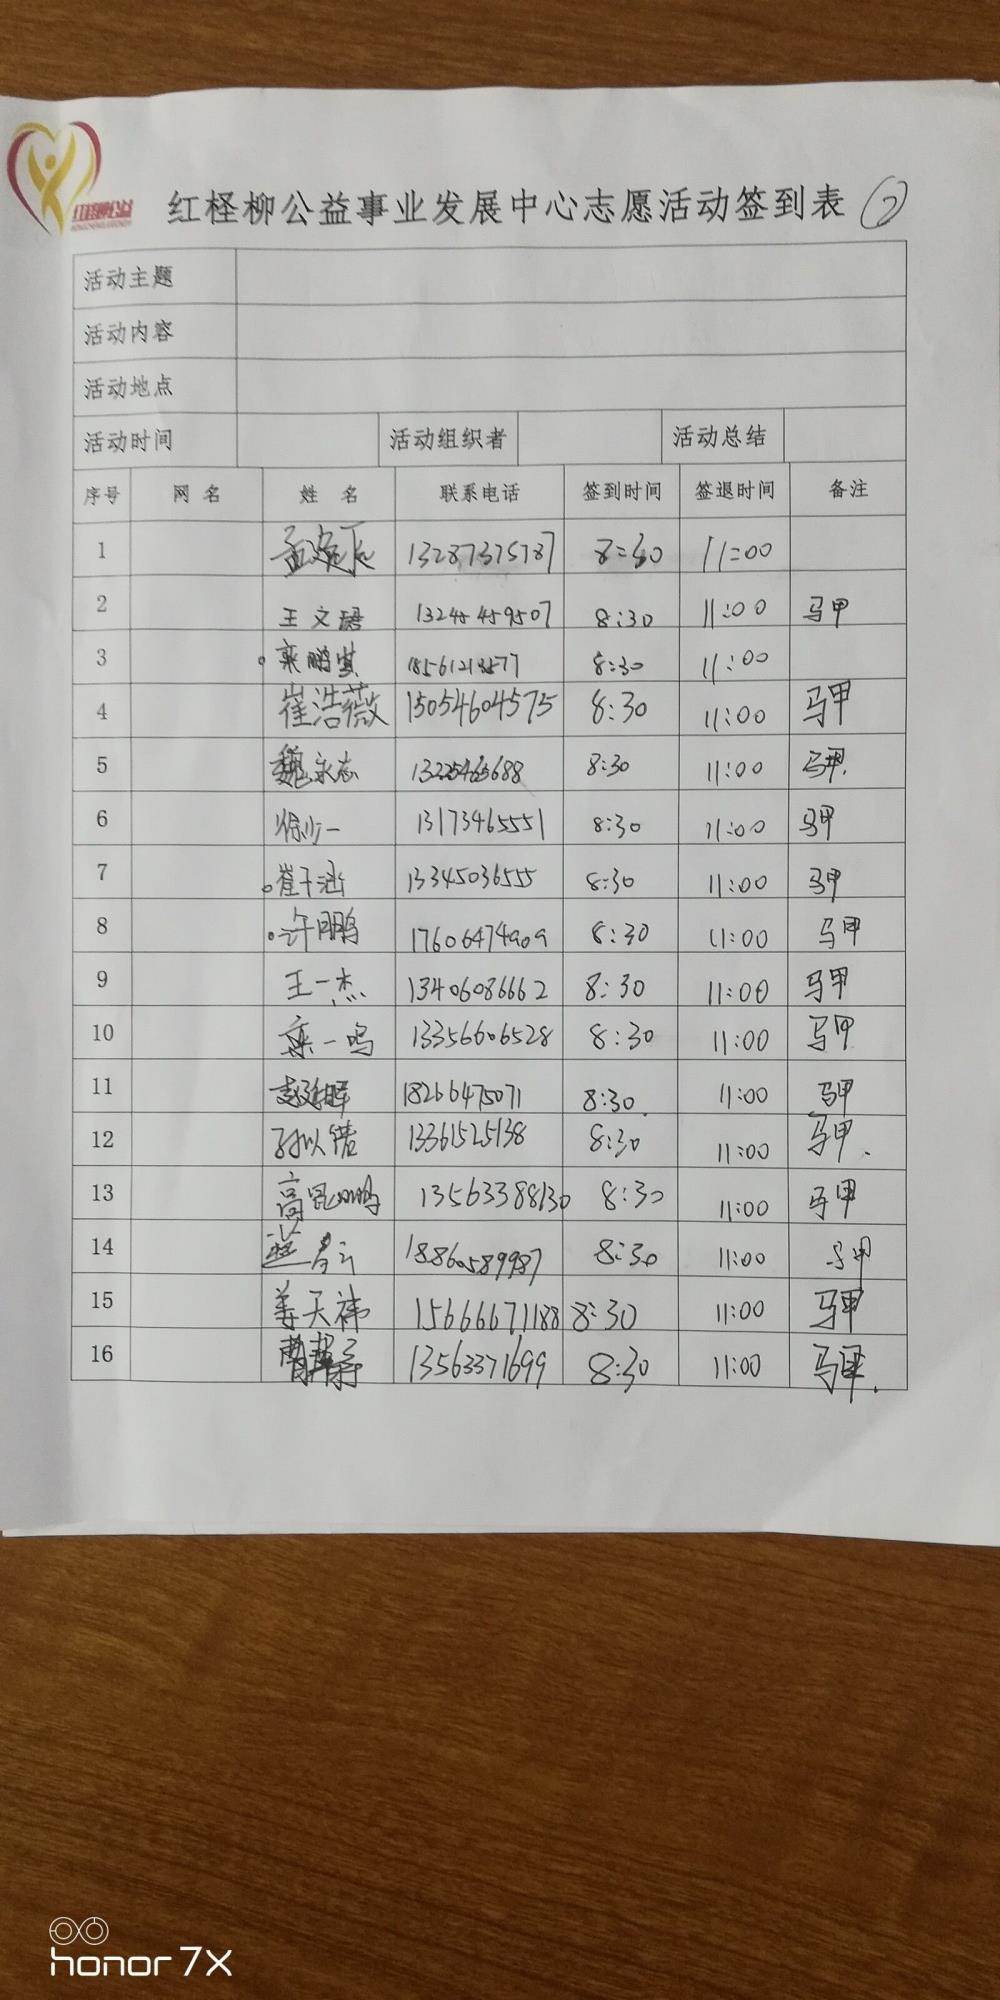 红柽柳公益
红柽柳公益事业发展中心志愿活动签到表 ②
活动主题
活动内容
活动地点
活动时间 活动组织者 活动总结
序号 网名 姓名 联系电话 签到时间 签退时间 备注
1 13287375787 8:30 11:00
2 王文珺 13245459507 8:30 11:00 马甲
3 栾鹏箕 8:30 11:00
4 崔浩薇 15054604575 8:30 11:00 马甲
5 魏永志 13225465688 8:30 11:00 马甲.
6 徐少一 13173465551 8:30 11:00 马甲
7 崔子涵 13345036555 8:30 11:00 马甲
8 许鹏 17606474909 8:30 11:00 马甲
9 王一杰 13406086662 8:30 11:00 马甲
10 栾一鸣 13356606528 8:30 11:00 马甲
11 18266475071 8:30. 11:00 马甲
12 孙以倩 13361525138 8:30 11:00 马甲.
13 高昆鹏 13563388130 8:30 11:00 马甲
14 18860589987 8:30 11:00 马甲
15 姜天祎 15666671188 8:30 11:00 马甲
16 13563371699 8:30 11:00 马甲.
honor 7X